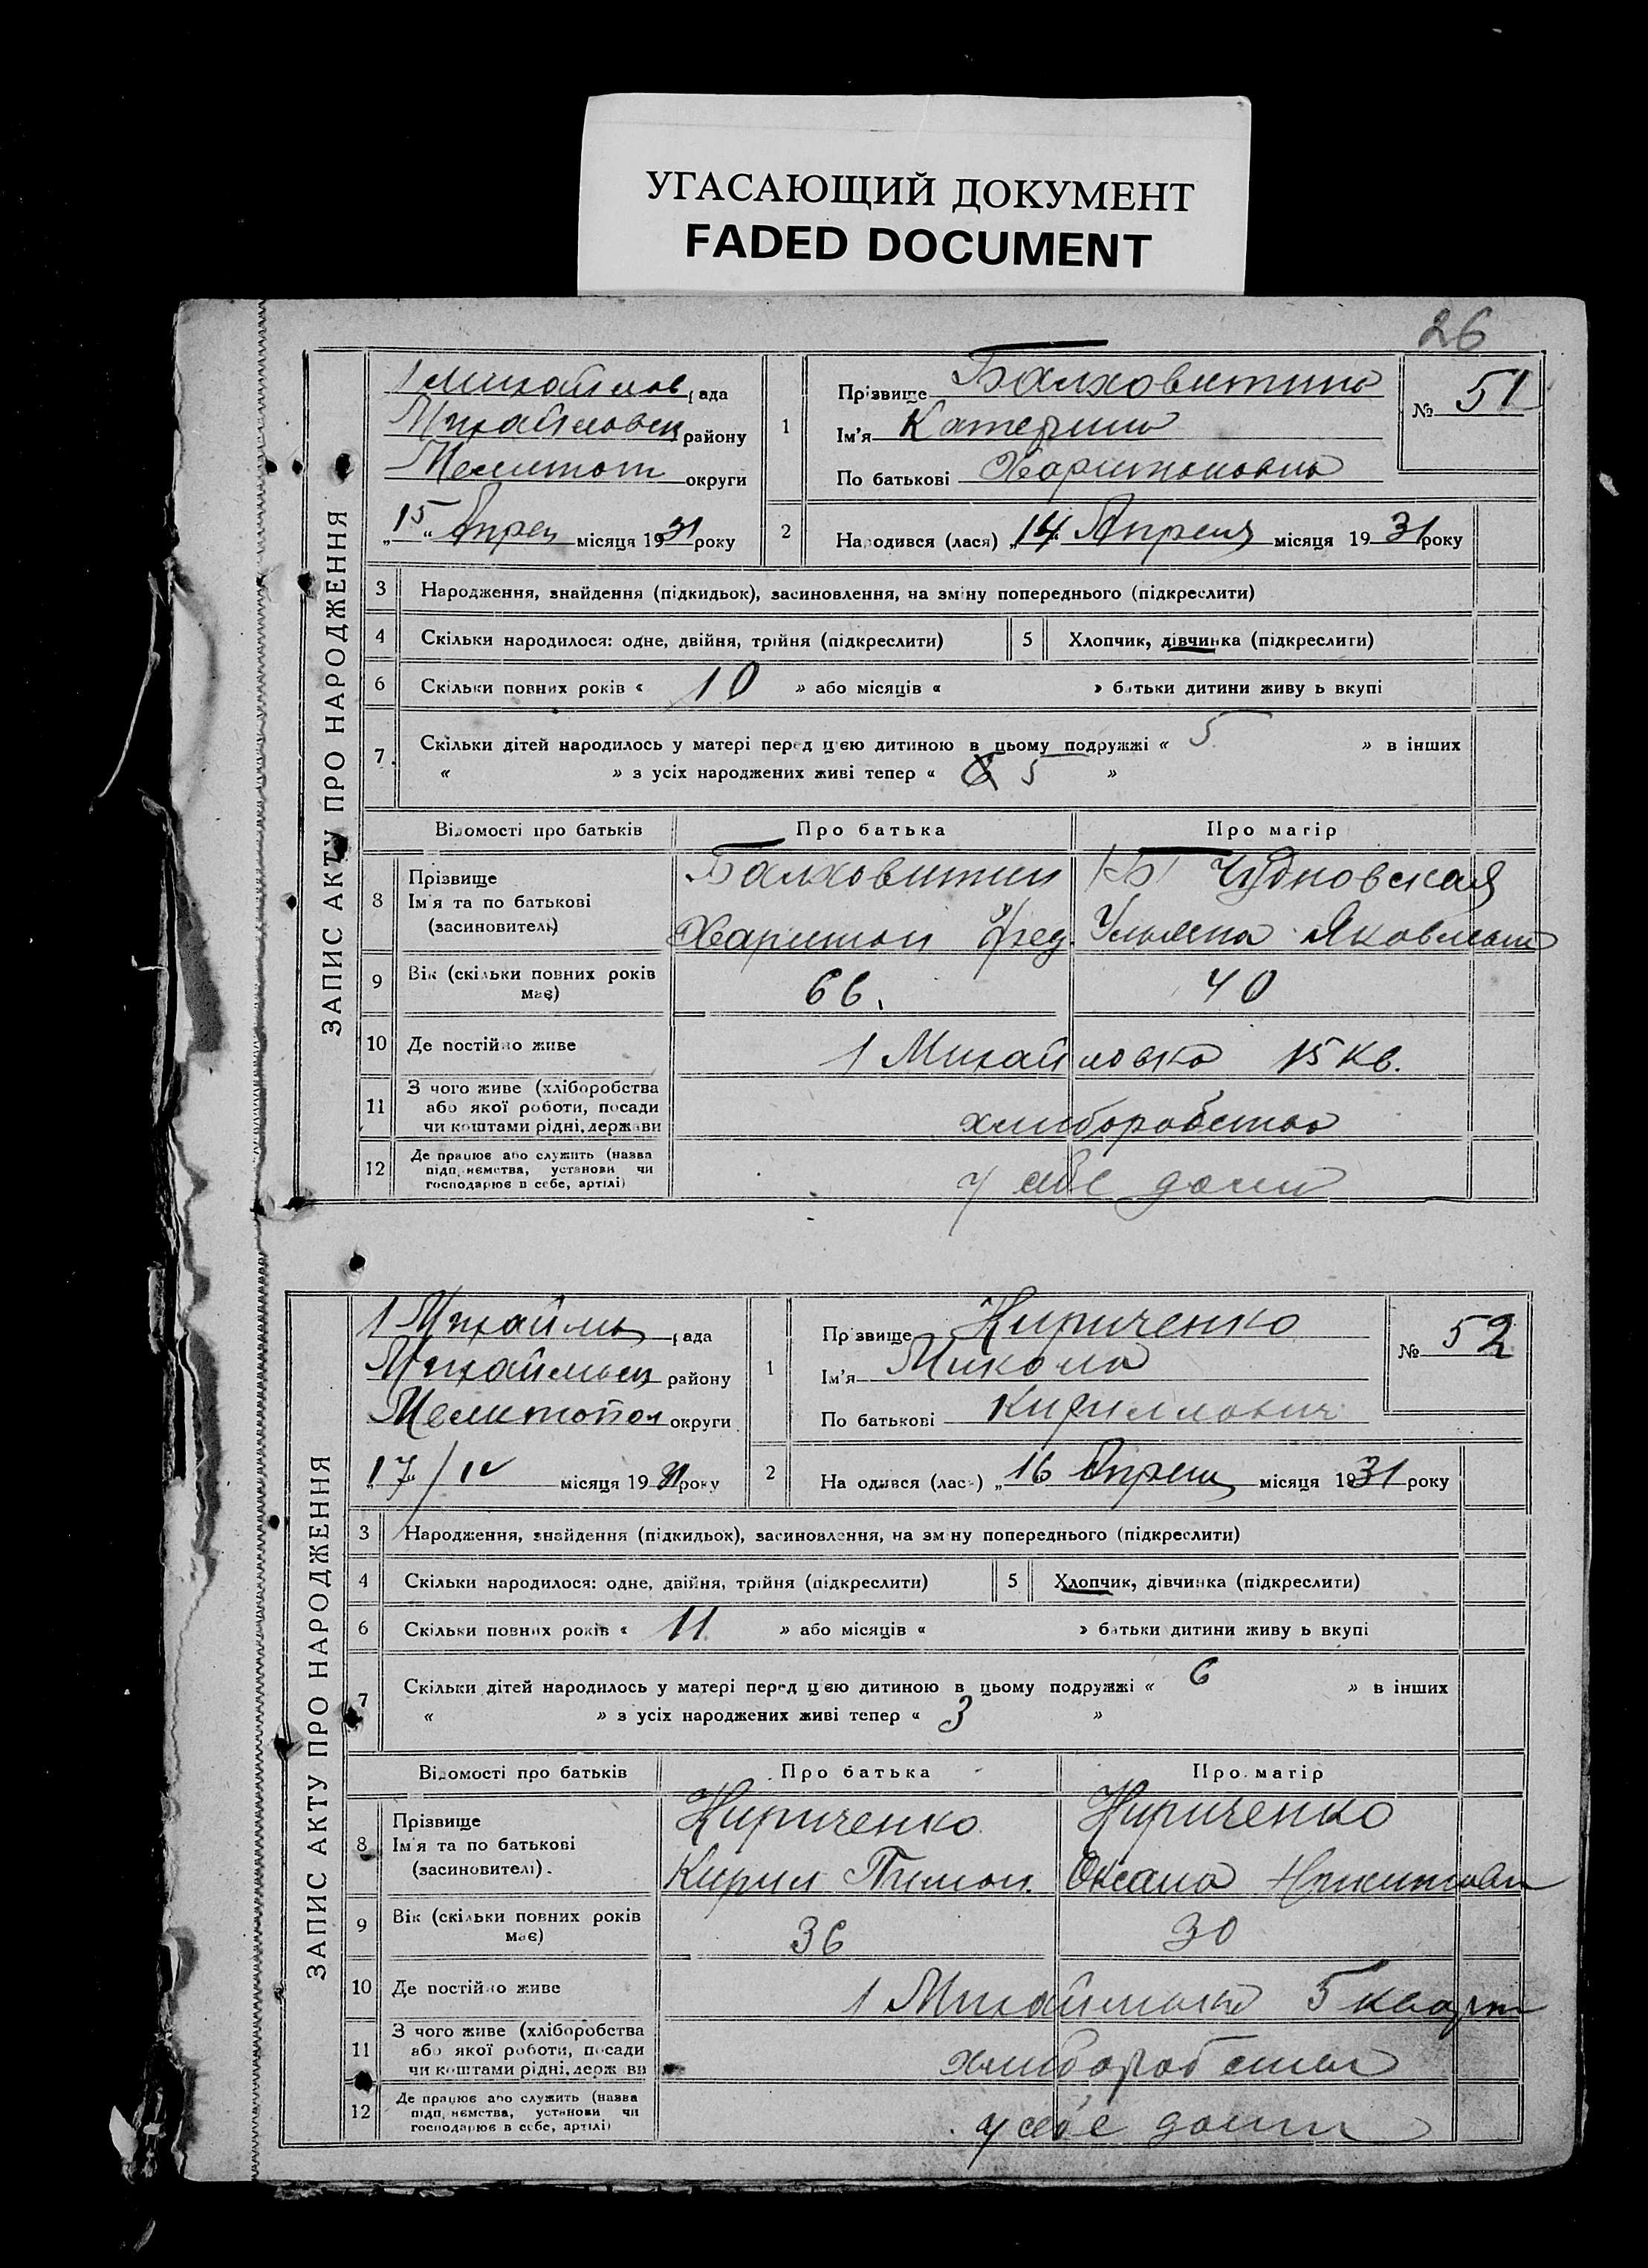 УГАСАЮЩИЙ ДОКУМЕНТ
FADED DOCUMENT
26
ЗАПИС АКТУ ПРО НАРОДЖЕННЯ
1 Михайлов рада
Михайловск району
Мелитоп округи
„15“ Апрел місяця 1931 року
1 Прізвище Балховитина
Ім'я Катерина
По батькові Харитоновна
№ 51
2 Народився (лася) „14 Апреля місяця 1931 року
3 Народження, знайдення (підкидьок), засиновлення, на зміну попереднього (підкреслити)
4 Скільки народилося: одне, двійня, трійня (підкреслити) 5 Хлопчик, дівчинка (підкреслити)
6 Скільки повних років « 10 » або місяців « » батьки дитини живуть вкупі
7 Скільки дітей народилось у матері перед цією дитиною в цьому подружжі « 5 » в інших
« » з усіх народжених живі тепер « 5 »
Відомості про батьків Про батька Про матір
8 Прізвище Балховитин Чудновская
Ім'я та по батькові
(засновитель) Харитон Фед. Ульяна Яковлевна
9 Вік (скільки повних років має) 66. 40
10 Де постійно живе 1 Михайловка 15 кв.
11 З чого живе (хліборобства
або якої роботи, посади хлиборобство
чи коштами рідні, держави
12 Де працює або служить (назва
підприємства, установи чи у себе дома
господарює в себе, артілі)
ЗАПИС АКТУ ПРО НАРОДЖЕННЯ
1 Михайлов рада
Михайловск району
Мелитопол округи
„17“/IV місяця 1931 року
1 Прізвище Кириченко
Ім'я Микола
По батькові Кириллович
№ 52
2 Народився (лася) „16 Апреля місяця 1931 року
3 Народження, знайдення (підкидьок), засиновлення, на зміну попереднього (підкреслити)
4 Скільки народилося: одне, двійня, трійня (підкреслити) 5 Хлопчик, дівчинка (підкреслити)
6 Скільки повних років « 11 » або місяців « » батьки дитини живуть вкупі
7 Скільки дітей народилось у матері перед цією дитиною в цьому подружжі « 6 » в інших
« » з усіх народжених живі тепер « 3 »
Відомості про батьків Про батька Про матір
8 Прізвище Кириченко Кириченко
Ім'я та по батькові
(засиновителі) Кирил Тимон. Оксана Никитовн
9 Вік (скільки повних років має) 36 30
10 Де постійно живе 1 Михайловка 5 кварт
11 З чого живе (хліборобства
або якої роботи, посади хлиборобства
чи коштами рідні, держави
12 Де працює або служить (назва
підприємства, установи чи у себе дома
господарює в себе, артілі)